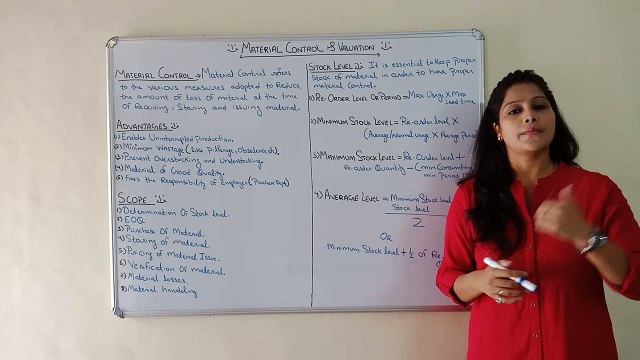 MATERIAL CONTROL & VALUATION
MATERIAL CONTROL → Material Control refers
to the various measures adopted to Reduce
the amount of loss of material at the time
of Receiving, Storing and issuing material.
ADVANTAGES :-
1) Enables Uninterrupted Production.
2) Minimum Wastage (Like pilferage, Obsolence etc.
3) Prevent Overstocking and Understocking.
4) Material of Good Quality.
5) Fixes the Responsibility of Employer (Purchase Dept)
SCOPE
1) Determination Of Stock level.
2) EOQ
3) Purchase Of Material.
4) Storing of material.
5) Pricing of Material Issue.
6) Verification Of material.
7) Material losses.
8) Material handling
STOCK LEVEL It is essential to keep proper
stock of material in order to have proper
material control.
1) Re-Order level Or Period = Max Usage X Max
lead time
2) Minimum Stock Level = Re-order level X
(Average/Normal usage X Average Period
3) Maximum Stock Level = Re-order level +
Re-order Quantity - (Min Consumption
min. Period
4) Average Level = Minimum Stock level
Stock level
2
OR
Minimum Stock level + 1/2 of Re